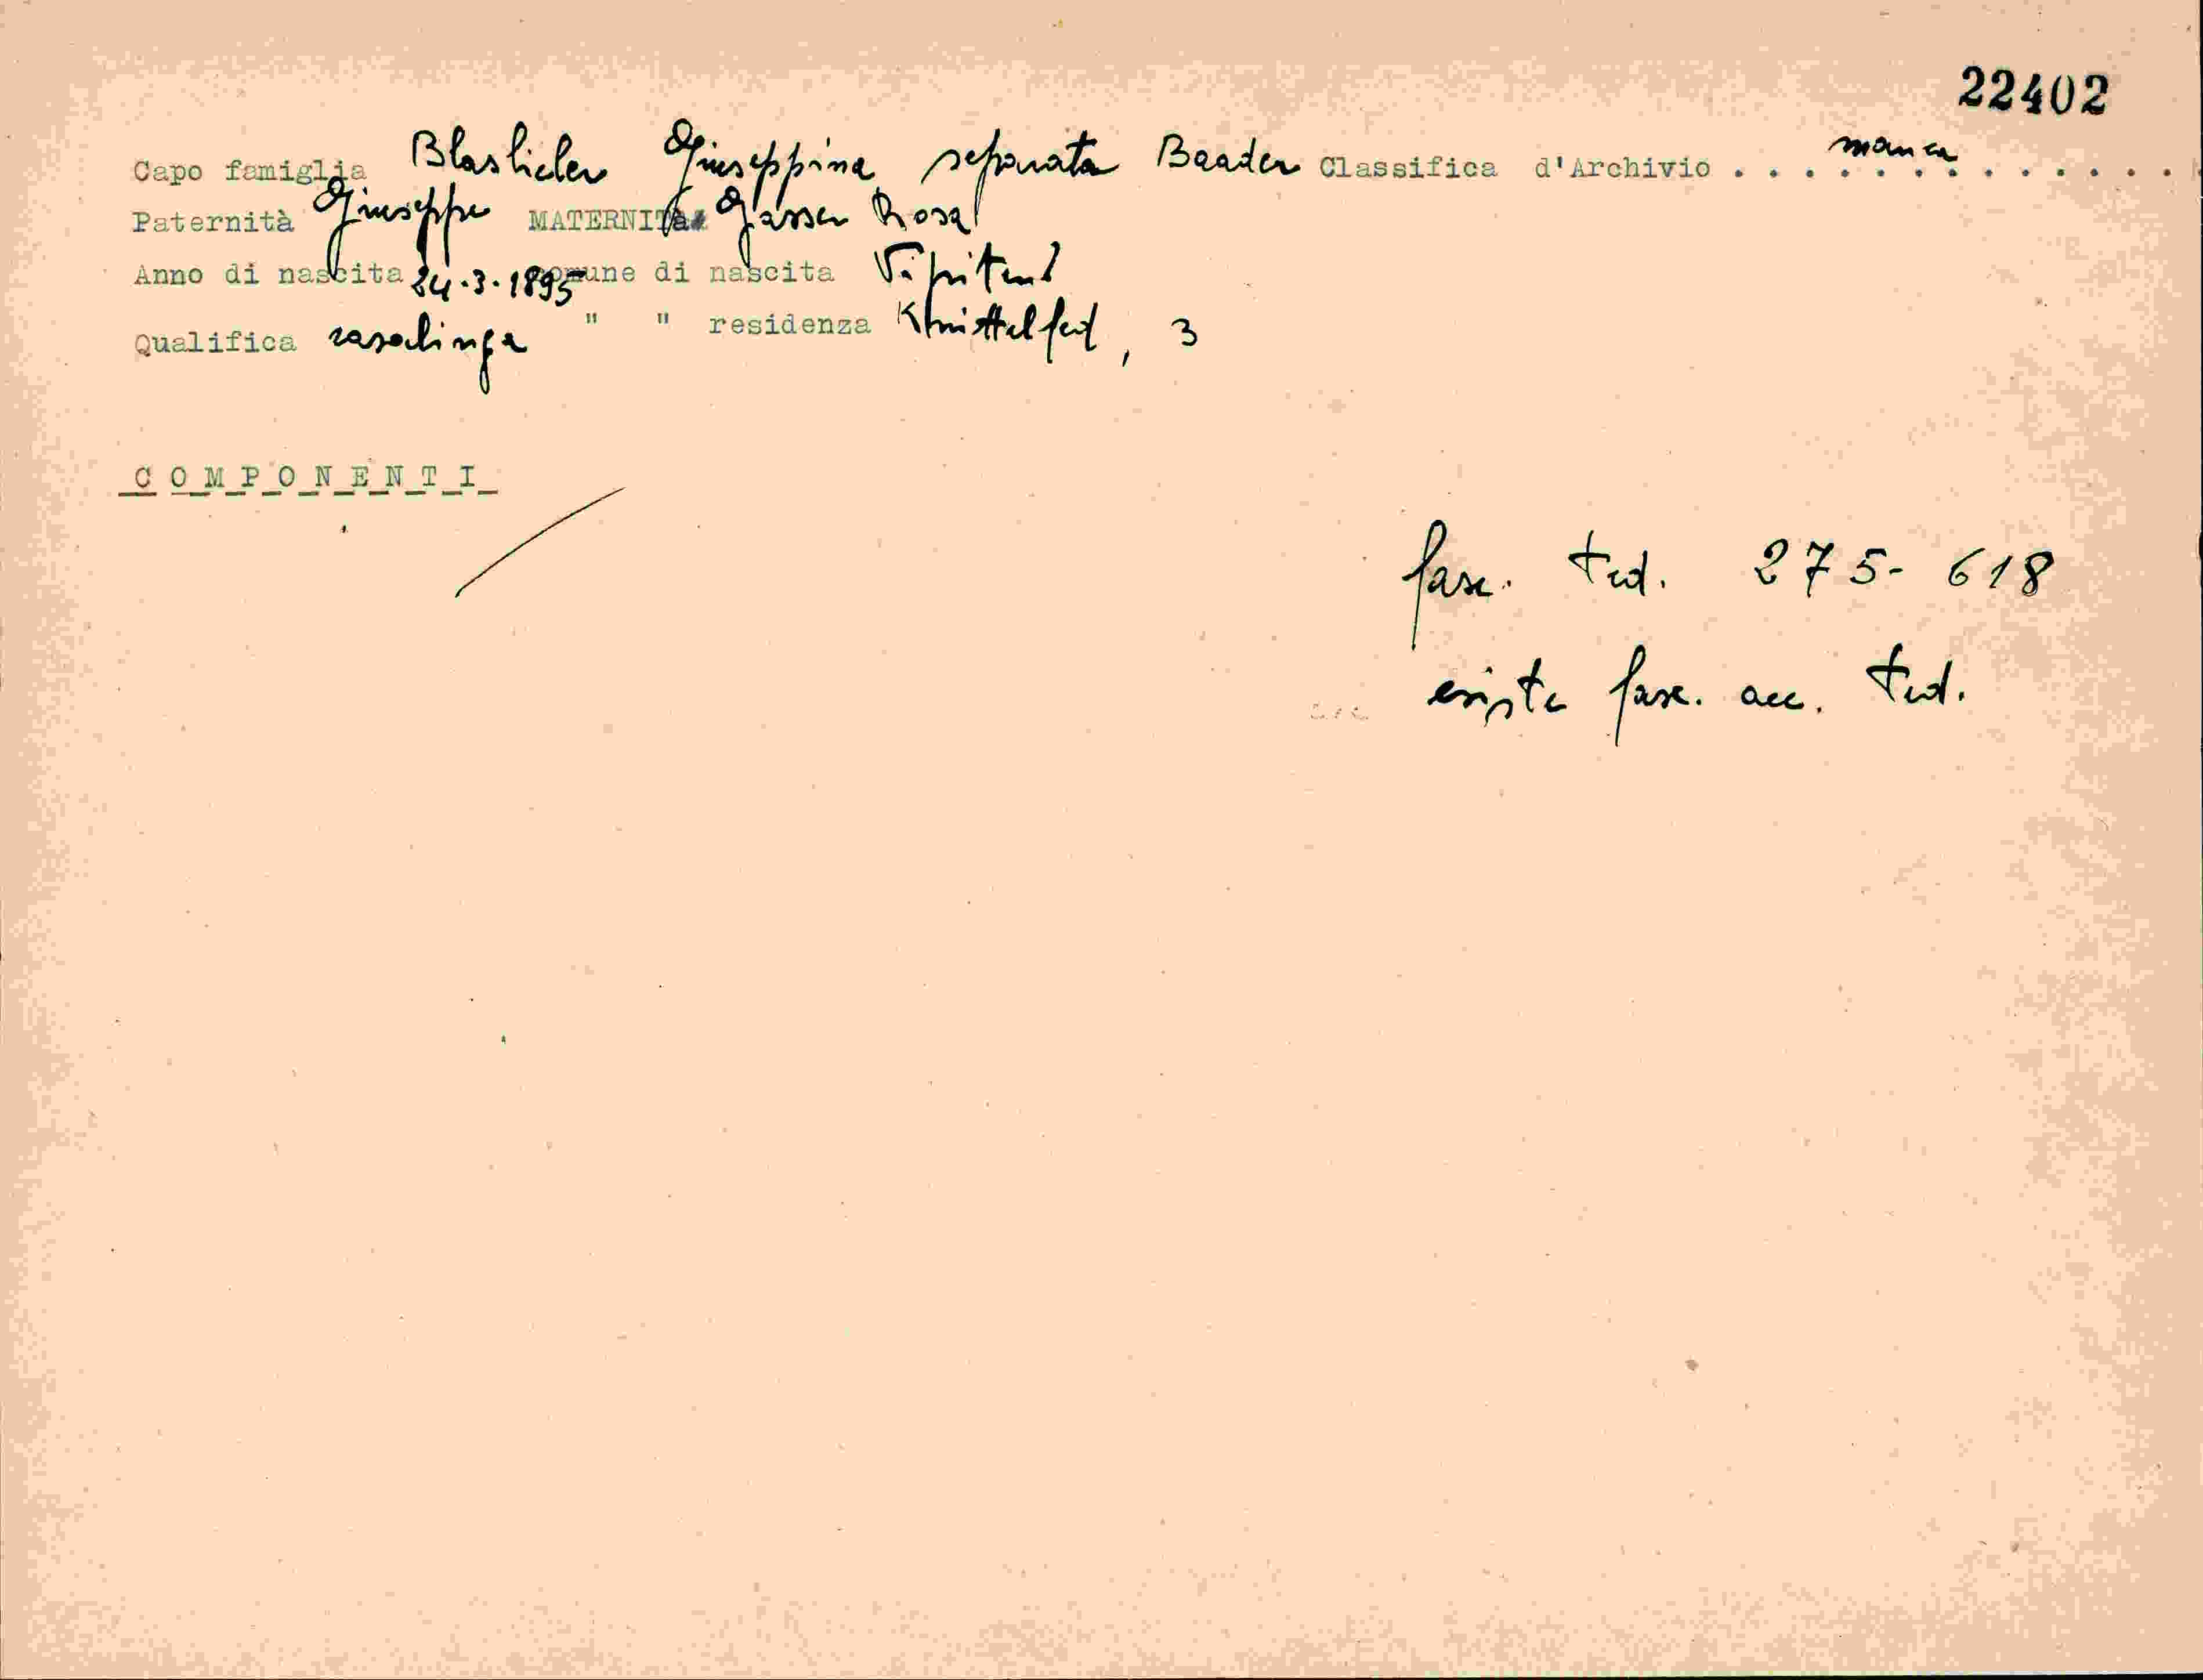 22402
Capo famiglia Blasbichler Giuseppina separata Baader Classifica d'Archivio . . . manca . . .
Paternità Giuseppe MATERNITà Gasser Rosa
Anno di nascita 24.3.1895 comune di nascita Vipiteno
Qualifica casalinga " " residenza Knittelfed, 3
COMPONENTI
fasc. ted. 275-618
esiste fasc. acc. ted.